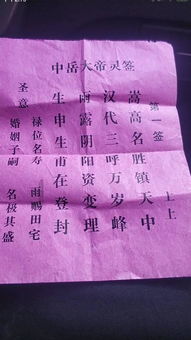 中岳大帝灵签
第一签 上上
嵩高名胜镇天中
汉代三呼万岁峰
雨露阴阳资变理
生申生甫在登封
圣意
禄位名寿 雨赐田宅
婚姻子嗣 名极其盛